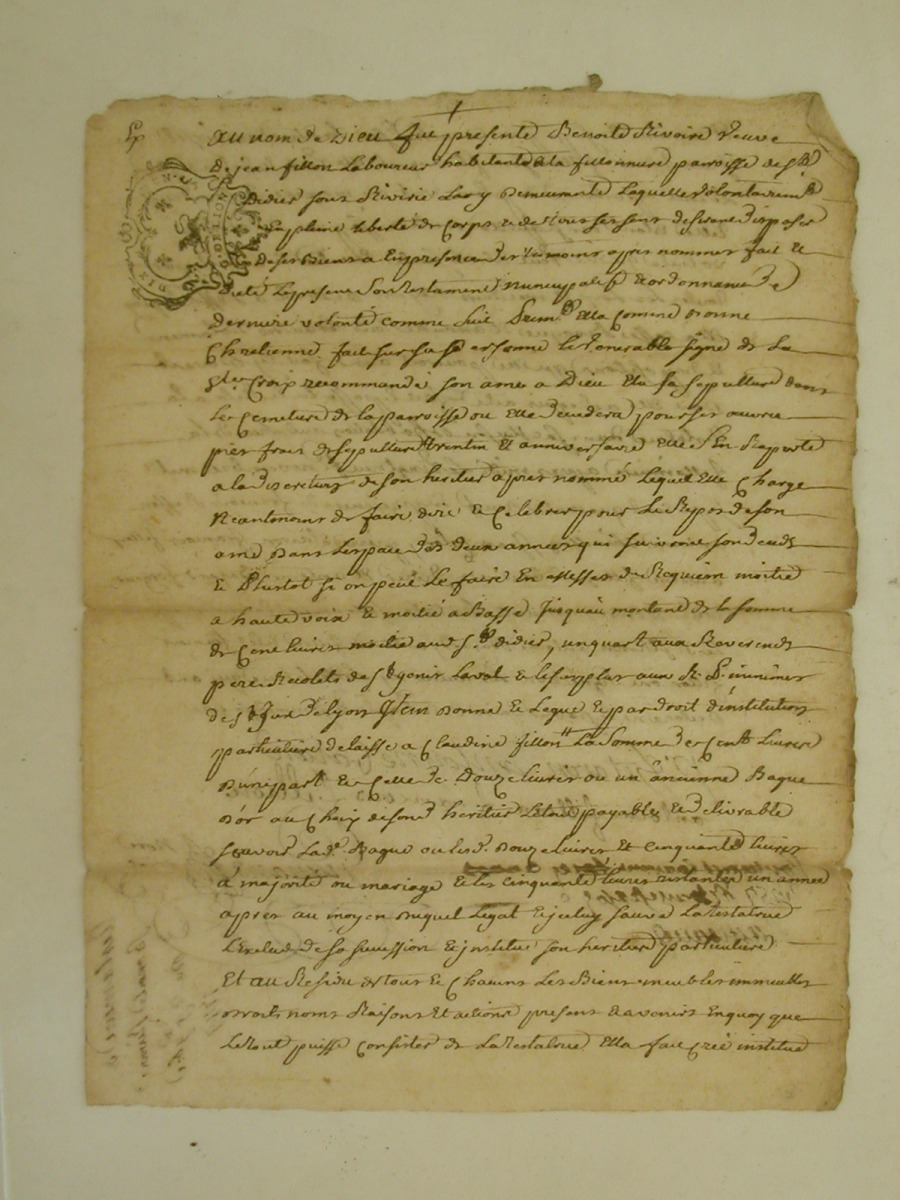 au nom de Dieu fut presente Benoite Rivoire veuve
de jean fillon Laboureur habitante a la fillonniere parroisse de st
Didier sous Riverie Lacy Demeurante Laquelle volontairemt
En pleine liberté de Corps & de tous ses sens desirant disposer
de ses Biens a En presence des temoins apres nommez fait &
dicté Le present son testament nuncupatif & ordonnance de
derniere volonté comme suit Premt Ella Comme Bonne
Chretienne fait sur sa personne le venerable signe de La
ste Croix recommandé son ame a Dieu Ella sa sepulture dans
Le Cemetiere de la parroisse ou Elle decedera pour ses œuvres
pies frais de sepulture trentin & anniversaire Elle s'En Raporte
a la discretion de son heritier apres nommé Lequel Elle Charge
Neantmoins de faire dire & Celebrer pour Le Repos de son
ame dans L'espace des deux années qui suivront son deces
& Plustot si on peut Le faire En Messes de Requiem moitié
a haute voix & moitié a Basse Jusqu'au montant de la somme
de Cent livres moitié aud st didier, un quart aux Reverends
peres Recolets de st genis Laval & le surplus aux R. P. minimes
de st Just de lyon Item Donne & Legue & par droit d'institution
particuliere delaisse a Claudine fillon La somme de Cent Livres
D'une part & Celle de Douze livres ou un ancienne Bague
D'or au Choix de sond heritier Le tout payable & delivrable
scavoir Lad. Bague ou lesd. Douze Livres & Cinquante livres
a majorité ou mariage & les Cinquante livres restantes un année
apres au moyen Duquel Legat & jceluy sauve La testatrice
L'exclud de sa succession & jnstitue son heritiere particuliere
Et au Residu de tous & Chacuns Les Biens meubles immeubles
droits noms Raisons Et actions presents & avenirs En quoy que
Le tout puisse Consister de La testatrice Ella fait Créé institue